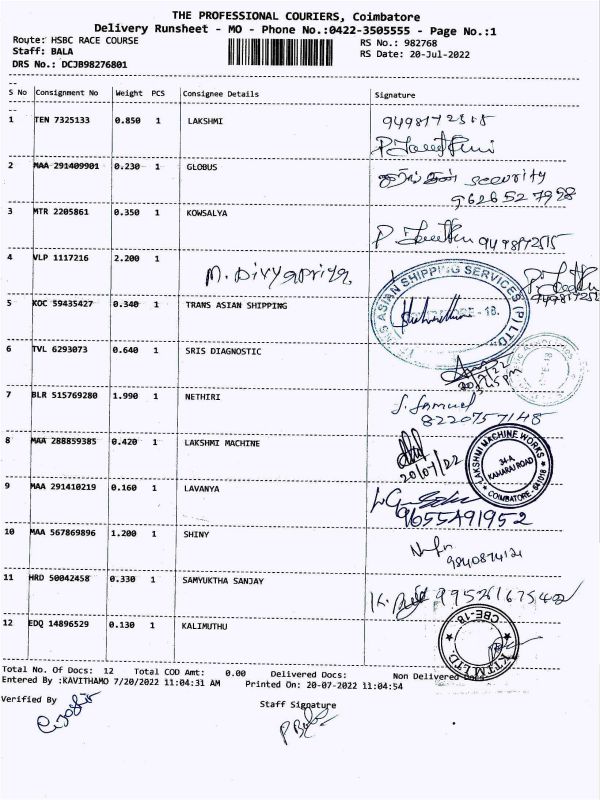 THE PROFESSIONAL COURIERS, Coimbatore
Delivery Runsheet - MO - Phone No.:0422-3505555 - Page No.:1
Route: HSBC RACE COURSE RS No.: 982768
Staff: BALA RS Date: 20-Jul-2022
DRS No.: DCJB98276801
S No Consignment No Weight PCS Consignee Details Signature
1 TEN 7325133 0.850 1 LAKSHMI
2 MAA 291409901 0.230 1 GLOBUS security
3 MTR 2205861 0.350 1 KOWSALYA
4 VLP 1117216 2.200 1 M. Divyapriya
5 KOC 59435427 0.340 1 TRANS ASIAN SHIPPING
ASIAN SHIPPING SERVICES (P) LTD
6 TVL 6293073 0.640 1 SRIS DIAGNOSTIC
7 BLR 515769280 1.990 1 NETHIRI S. Samuel
8220757148
8 MAA 288859385 0.420 1 LAKSHMI MACHINE 20/07/22
LAKSHMI MACHINE WORKS
34-A
KAMARAJ ROAD
COIMBATORE - 641018
9 MAA 291410219 0.160 1 LAVANYA
9655491952
10 MAA 567869896 1.200 1 SHINY
11 HRD 50042458 0.330 1 SAMYUKTHA SANJAY
12 EDQ 14896529 0.130 1 KALIMUTHU
CBE-18
Total No. Of Docs: 12 Total COD Amt: 0.00 Delivered Docs: Non Delivered Docs
Entered By :KAVITHAMO 7/20/2022 11:04:31 AM Printed On: 20-07-2022 11:04:54
Verified By Staff Signature